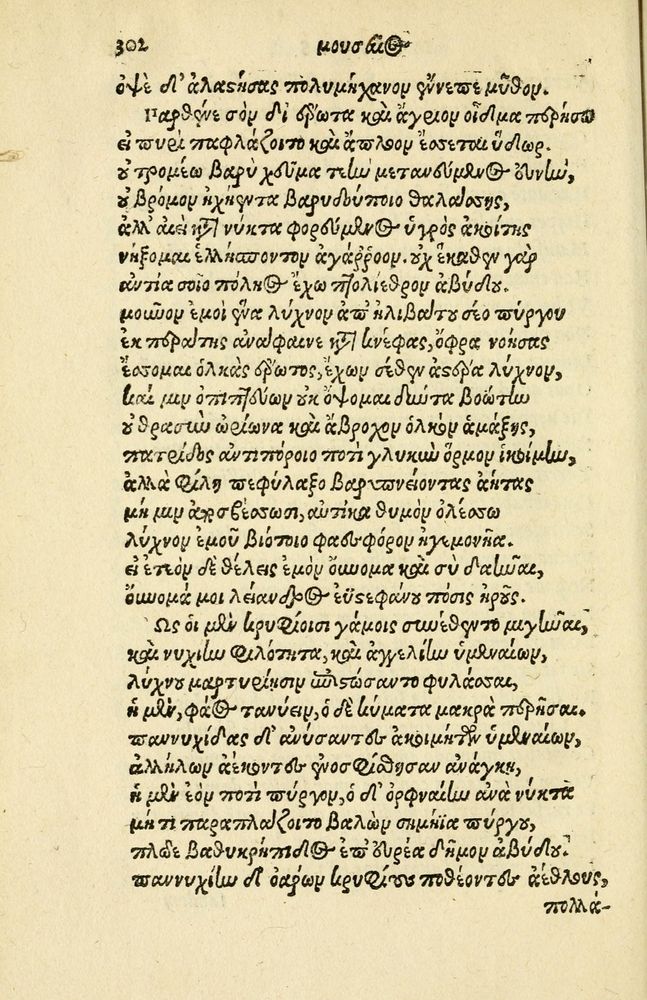 302 μουσαίου
ὀψὲ δ' ἀλαστήσας πολυμήχανον ἔννεπε μῦθον.
Παρθένε σὸν δι' ἔρωτα καὶ ἄγριον οἶδμα περήσω
εἰ πυρὶ παφλάζοιτο καὶ ἄπλοον ἔσσεται ὕδωρ.
οὐ τρομέω βαρὺ χεῦμα τεὴν μετανεύμενος εὐνήν,
οὐ βρόμον ἠχήεντα βαρυδούποιο θαλάσσης,
ἀλλ' αἰεὶ κατὰ νύκτα φορεύμενος ὑγρὸς ἀκοίτης
νήξομαι ἑλλήσποντον ἀγάῤῥοον. οὐχ ἕκαθεν γὰρ
ἀντία σοῖο πόληος ἔχω πτολίεθρον ἀβύδου.
μοῦνον ἐμοὶ ἕνα λύχνον ἀπ' ἠλιβάτου σέο πύργου
ἐκ περάτης ἀνάφαινε κατὰ κνέφας, ὄφρα νοήσας
ἔσσομαι ὁλκὰς ἔρωτος, ἔχων σέθεν ἀστέρα λύχνον,
καί μιν ὀπιπτεύων οὐκ ὄψομαι δύντα βοώτην
οὐ θρασὺν ὠρίωνα καὶ ἄβροχον ὁλκὸν ἁμάξης,
πατρίδος ἀντιπόροιο ποτὶ γλυκὺν ὅρμον ἱκοίμην,
ἀλλὰ φίλη πεφύλαξο βαρυπνείοντας ἀήτας
μή μιν ἀποσβέσσωσι, αὐτίκα θυμὸν ὀλέσσω
λύχνον ἐμοῦ βιότοιο φαεσφόρον ἡγεμονῆα.
εἰ ἐτεὸν δὲ θέλεις ἐμὸν οὔνομα καὶ σὺ δαῆναι,
οὔνομά μοι λέανδρος ἐϋστεφάνου πόσις ἡροῦς.
Ὣς οἱ μὲν κρυφίοισι γάμοις συνέθεντο μιγῆναι,
καὶ νυχίην φιλότητα, καὶ ἀγγελίην ὑμεναίων,
λύχνου μαρτυρίῃσιν ἐπιστώσαντο φυλάσσειν,
ἡ μὲν, φάος τανύειν, ὁ δὲ κύματα μακρὰ περῆσαι.
παννυχίδας δ' ἀνύσαντες ἀκοιμήτων ὑμεναίων,
ἀλλήλων ἀέκοντες ἐνοσφίσθησαν ἀνάγκῃ,
ἡ μὲν ἑὸν ποτὶ πύργον, ὁ δ' ὀρφναίην ἀνὰ νύκτα
μή τι παραπλάζοιτο βαλὼν σημήϊα πύργου,
πλῶε βαθυκρήπιδος ἐπ' εὐρέα δῆμον ἀβύδου.
παννυχίων δ' ὀάρων κρυφίους ποθέοντες ἀέθλους,
πολλά-